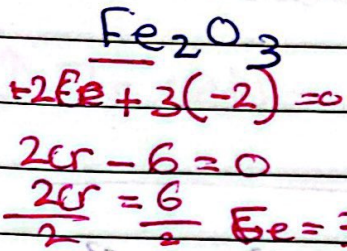 Fe₂O₃
+2Fe + 3(-2) = 0
2cr - 6 = 0
2cr/2 = 6/2 Fe =